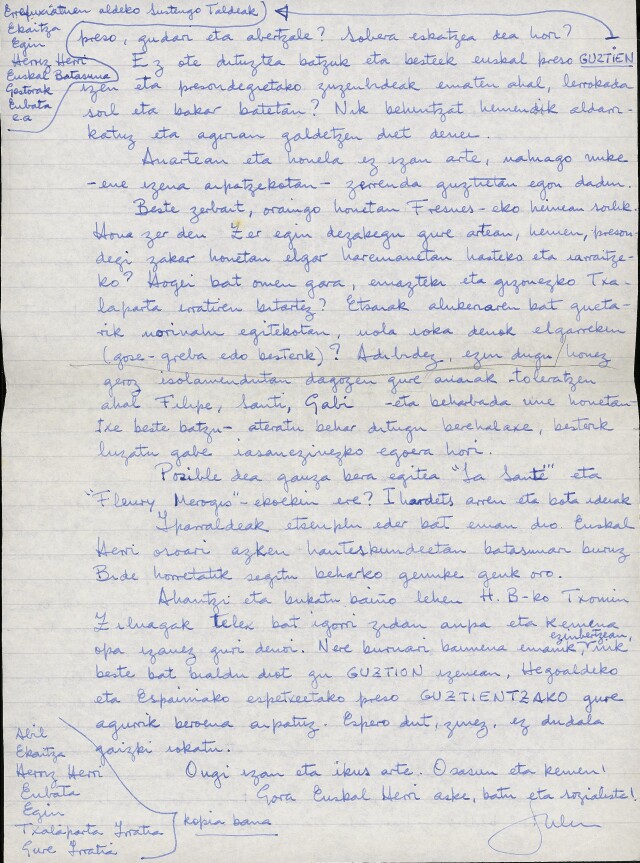 Errefuxiatuen aldeko Sustengo Taldeak
Ekaitza
Egin
Herriz Herri
Euskal Batasuna
Gestorak
Enbata
e.a
preso, gudari eta abertzale? Sobera eskatzea dea hori?
Ez ote dituztea batzuk eta besteek euskal preso GUZTIEN
izen eta presondegietako zuzenbideak ematen ahal, lerrokada
soil eta bakar batetan? Nik behintzat hemendik aldarri-
katuz eta agirian galdetzen diet denei.
Anartean eta honela ez izan arte, nahiago nuke
-ene izena aipatzekotan- zerrenda guztietan egon dadin.
Beste zerbait, oraingo honetan Fresnes-eko heinean soilik.
Hona zer den Zer egin dezakegu gure artean, hemen, preson-
degi zakar honetan elgar harremanetan hasteko eta iarraitze-
ko? Hogei bat omen gara, emazteki eta gizonezko Txa-
laparta irratiren bitartez? Etsaiak alukeriaren bat gueta-
rik norinahi egitekotan, nola ioka denok elgarrekin
(gose-greba edo besterik)? Adibidez, ezin dugu honez
geroz isolamendutan dagozen gure anaiak toleratzen
ahal Filipe, Santi, Gabi -eta beharbada une honetan-
txe beste batzu- atera behar ditugu berehalaxe, besterik
luzatu gabe iasanezinezko egoera hori.
Posible dea gauza bera egitea "La Santé" eta
"Fleury Merogis"-ekoekin ere? Ihardets arren eta bota ideiak
Iparraldeak etsenplu eder bat eman dio Euskal
Herri osoari azken hauteskundeetan batasunari buruz
Bide horretatik segitu beharko genuke geuk oro.
Ahantzi eta bukatu baino lehen H.B-ko Txomin
Ziluagak telex bat igorri zidan aupa eta kemena
opa izanez guri denoi. Nere buruari baimena emanik ezinbertzean, nik
beste bat bialdu diot gu GUZTION izenean, Hegoaldeko
eta Espainiako espetxeetako preso GUZTIENTZAKO gure
agurik beroena aipatuz. Espero dut, zinez, ez dudala
gaizki iokatu.
Ongi izan eta ikus arte. Osasun eta kemen!
Gora Euskal Herri aske, batu eta sozialista!.
Julen
Abil
Ekaitza
Herriz Herri
Enbata
Egin
Txalaparta Irratia
Gure Irratia
kopia bana